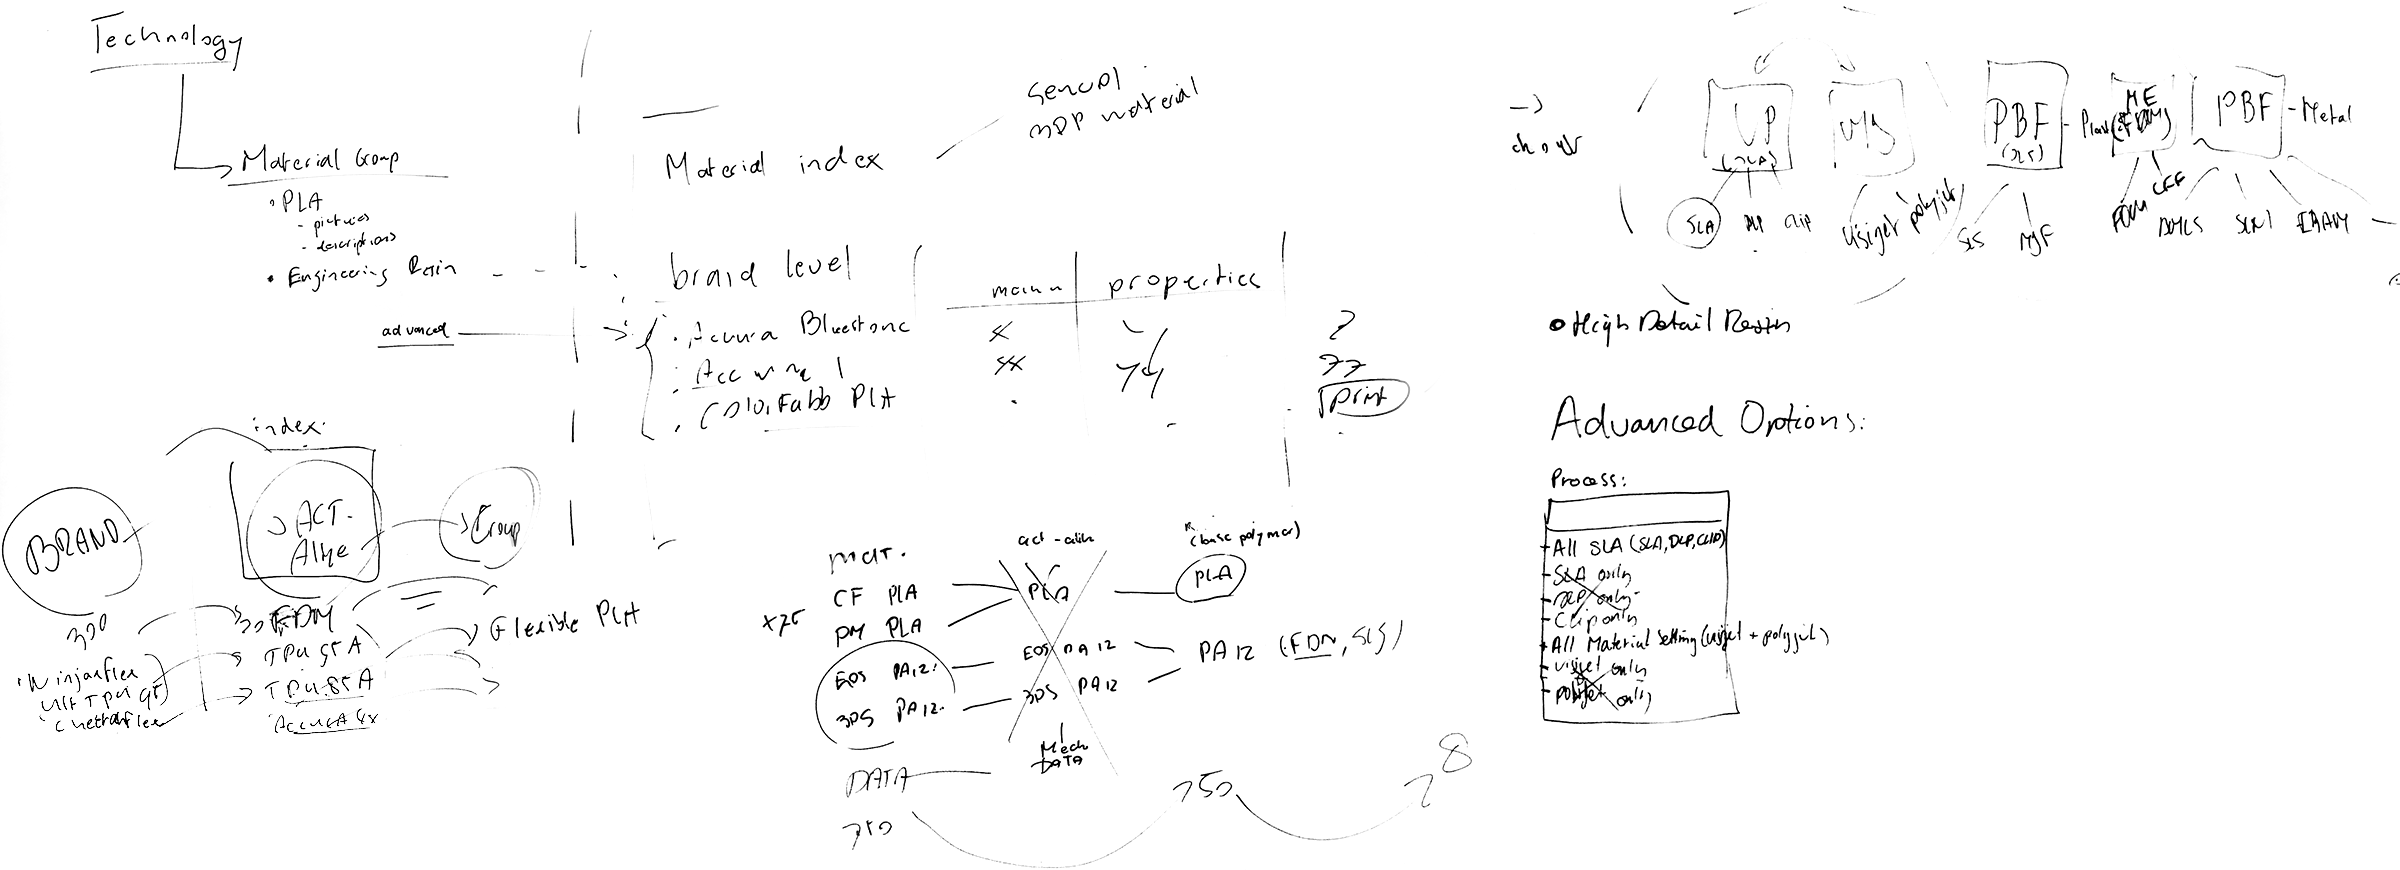 Technology
Material Group
• PLA
- pictures
- descriptions
• Engineering Resin
advanced
Material index
General
3DP material
brand level
main
properties
• Accura Bluestone
x
?
• Accura 1
xx
77
• Colorfabb PLA
print
index
BRAND
→ ACT-
Alike
→ Group
FDM
TPU 95A
TPU 85A
Flexible PLA
Ninjaflex
Cheetahflex
mat.
act-alike
(base polymer)
x75
CF PLA
PM PLA
PLA
PLA
EOS PA12
EOS PA12
3DS PA12
3DS PA12
PA12 (FDM, SLS)
DATA
Mech
DATA
750
750
? 8
→
VP
(SLA)
PBF
(SLS)
- Plast
ME
(FDM)
PBF
- Metal
SLA
DLP
CLIP
Visijet
polyjet
SLS
MJF
FDM
CFF
DMLS
SLM
EBAM
• High Detail Resin
Advanced Options:
Process:
- All SLA (SLA, DLP, CLIP)
- SLA only
- DLP only
- Clip only
- All Material Jetting (visijet + polyjet)
- visijet only
- polyjet only